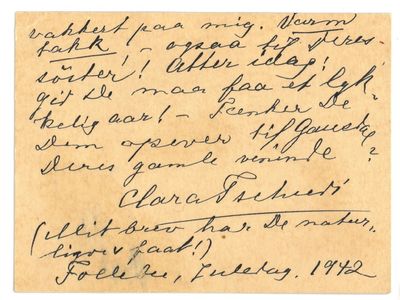 vakkert paa mig. Varm
takk! – ogsaa til Deres
söster! Atter idag:
gid De maa faa et lyk-
kelig aar! – Tænker De
Dem opover til Gausdal?
Deres gamle veninde
Clara Tschudi
(Mit brev har De natur-
ligvis faaet!)
Follebu, Juledag. 1942